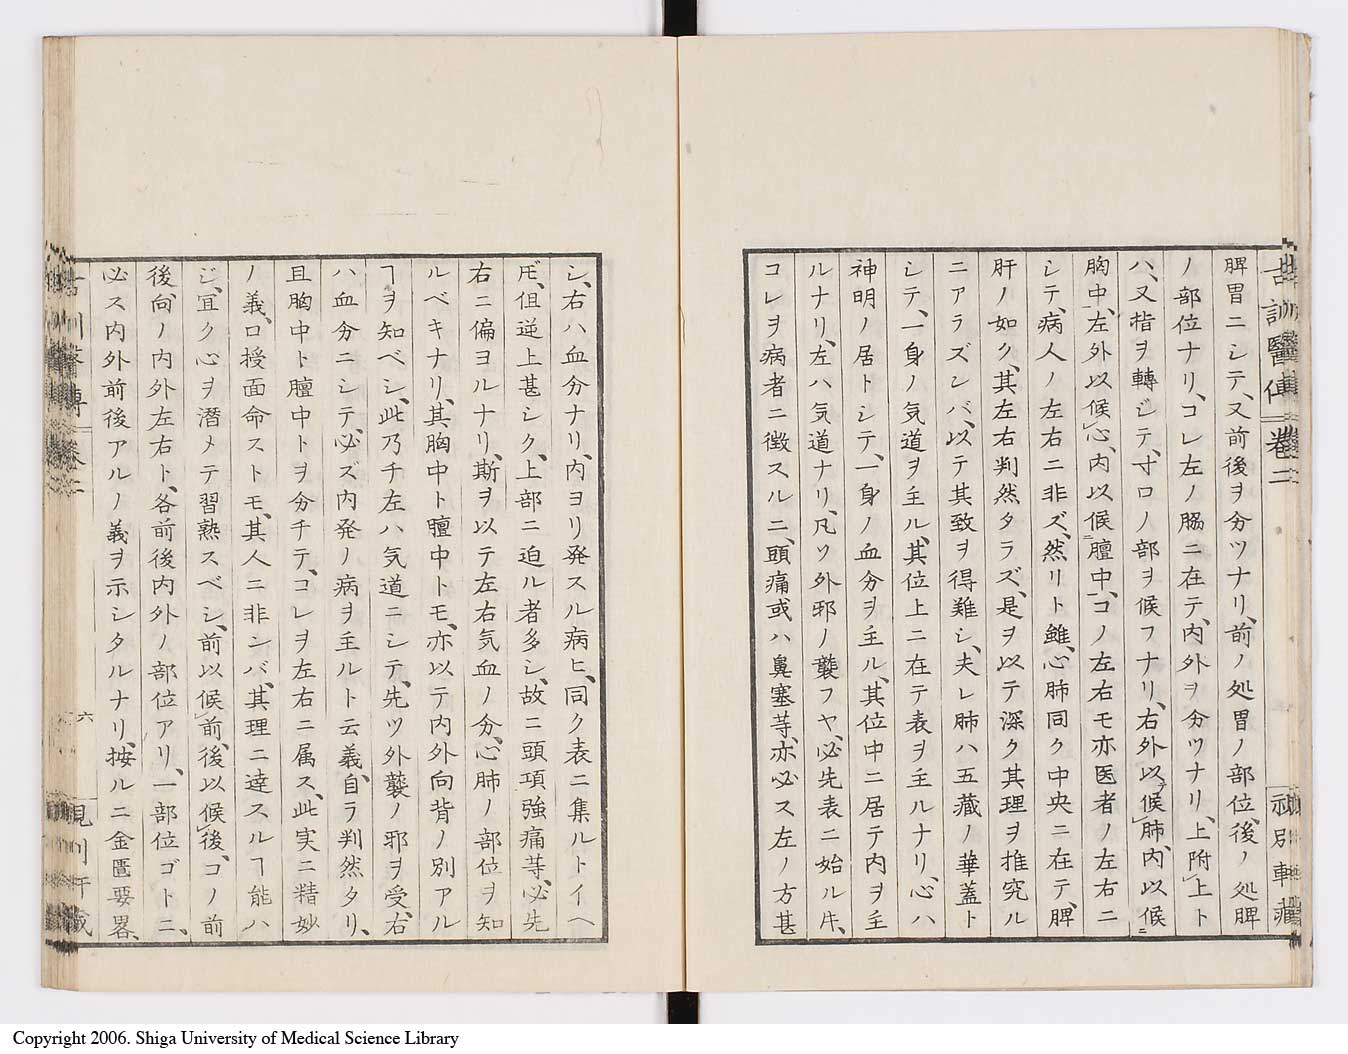 古訓醫傳 卷二
脾胃ニシテ、又前後ヲ分ツナリ、前ノ処胃ノ部位、後ノ処脾
ノ部位ナリ、コレ左ノ脇ニ在テ、内外ヲ分ツナリ、上附上ト
ハ、又指ヲ轉ジテ、寸口ノ部ヲ候フナリ、右外以候肺、内以候
胸中、左外以候心、内以候膻中、コノ左右モ亦医者ノ左右ニ
シテ、病人ノ左右ニ非ズ、然リト雖、心肺同ク中央ニ在テ、脾
肝ノ如ク、其左右判然タラズ、是ヲ以テ深ク其理ヲ推究ル
ニアラズンバ、以テ其致ヲ得難シ、夫レ肺ハ五藏ノ華蓋ト
シテ、一身ノ気道ヲ主ル、其位上ニ在テ表ヲ主ルナリ、心ハ
神明ノ居トシテ、一身ノ血分ヲ主ル、其位中ニ居テ内ヲ主
ルナリ、左ハ気道ナリ、凡ソ外邪ノ襲フヤ、必先表ニ始ル㐧、
コレヲ病者ニ徴スルニ、頭痛或ハ鼻塞等、亦必ス左ノ方甚
シ、右ハ血分ナリ、内ヨリ発スル病ヒ、同ク表ニ集ルトイヘ
𪜈、但逆上甚シク、上部ニ迫ル者多シ、故ニ頭項強痛等、必先
右ニ偏ヨルナリ、斯ヲ以テ左右気血ノ分、心肺ノ部位ヲ知
ルベキナリ、其胸中ト膻中トモ、亦以テ内外向背ノ別アル
ヿヲ知ベシ、此乃チ左ハ気道ニシテ、先ツ外襲ノ邪ヲ受、右
ハ血分ニシテ、必ズ内発ノ病ヲ主ルト云義、自ラ判然タリ、
且胸中ト膻中トヲ分チテ、コレヲ左右ニ属ス、此実ニ精妙
ノ義、口授面命ストモ、其人ニ非ンバ、其理ニ達スルヿ能ハ
ジ、宜ク心ヲ潜メテ習熟スベシ、前以候前、後以候後、コノ前
後、向ノ内外左右ト、各前後内外ノ部位アリ、一部位ゴトニ、
必ス内外前後アルノ義ヲ示シタルナリ、按ルニ金匱要畧、
卷二
六